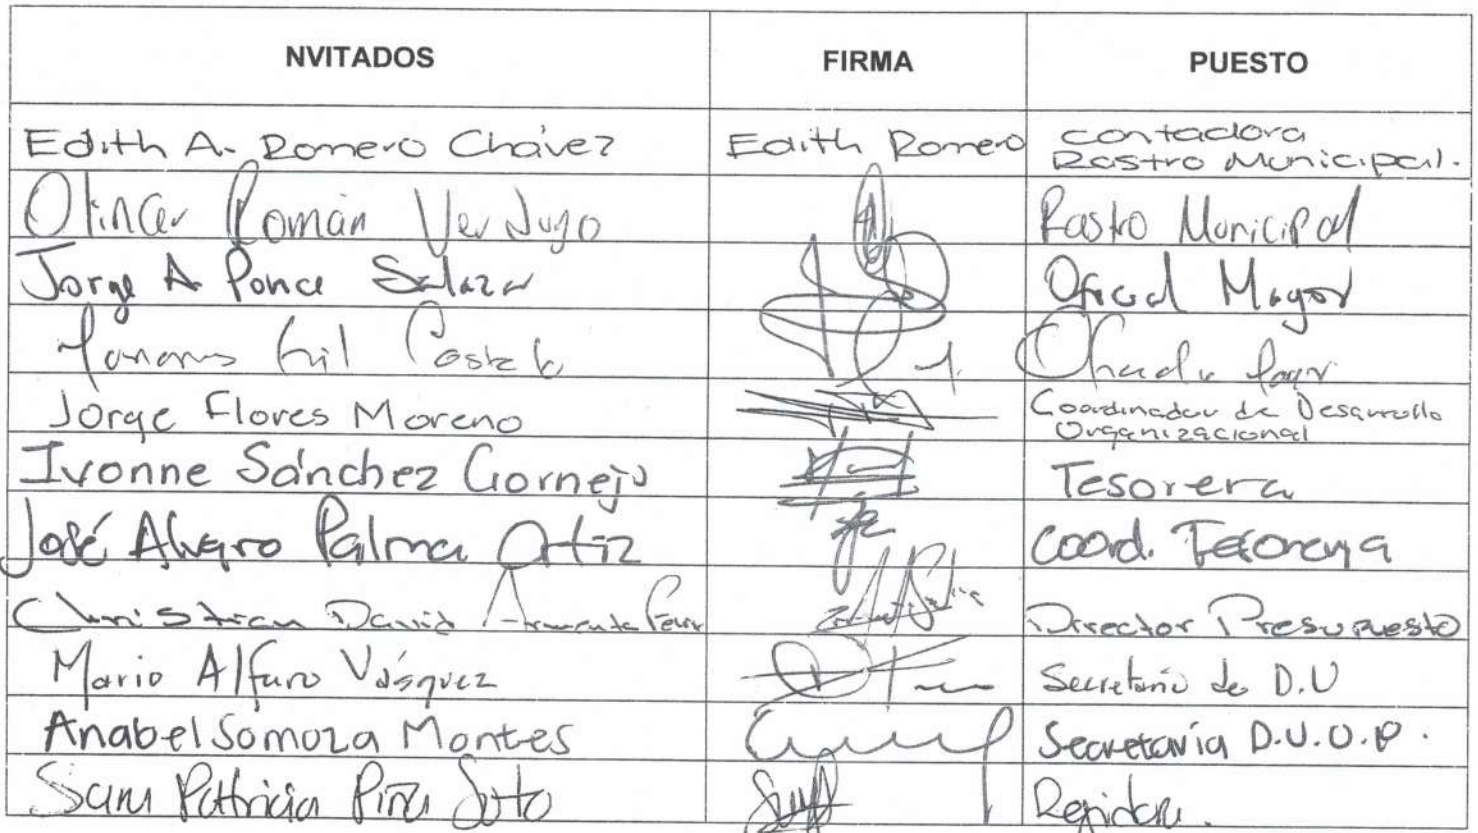 NVITADOS FIRMA PUESTO
Edith A. Romero Chávez Edith Romero contadora
Rastro Municipal.
Román Verdugo Rastro Municipal
Jorge A Ponce Salazar Oficial Mayor
Gil
Jorge Flores Moreno Coordinador de Desarrollo
Organizacional
Ivonne Sánchez Cornejo Tesorera
José Alvaro Palma Ortiz Coord.
Christian David Armenta Felix Director Presupuesto
Mario Alfaro Vásquez Secretario de D.U
Anabel Somoza Montes Secretaría D.U.O.P.
Sara Patricia Piña Soto Regidora.